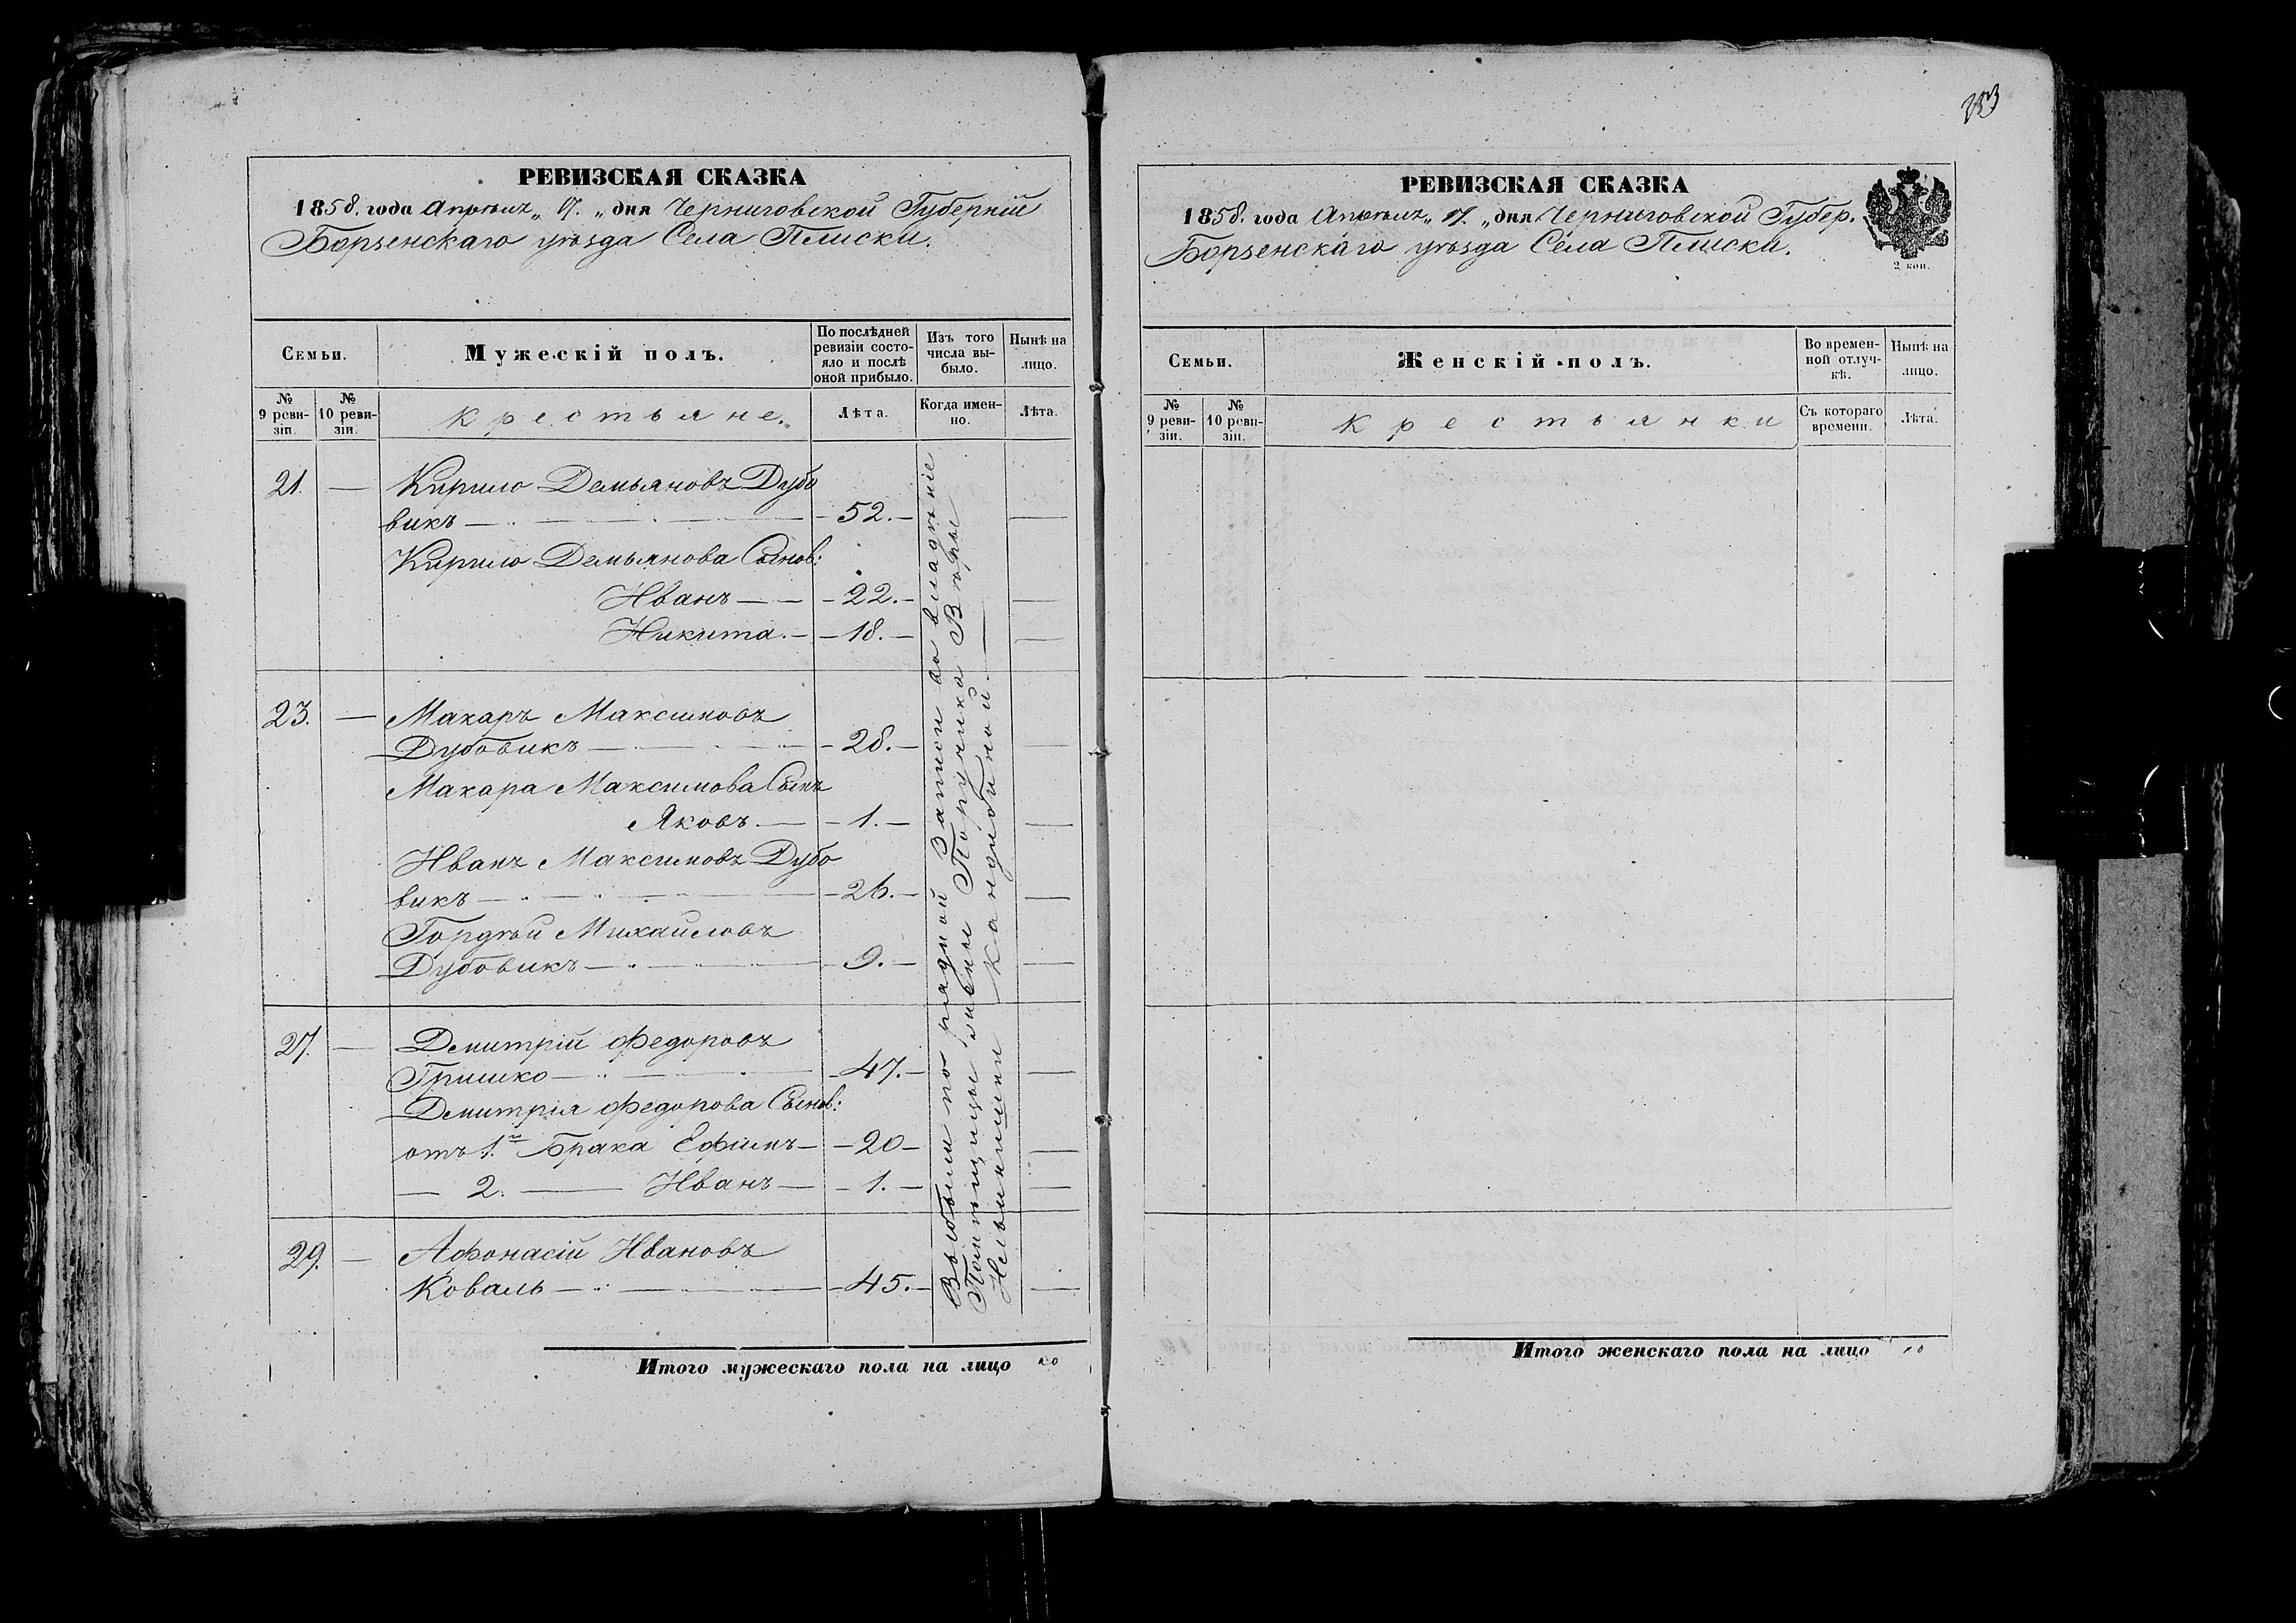 РЕВИЗСКАЯ СКАЗКА
1858. года Апрѣля „ 17. „ дня Черниговской Губерніи
Борзенскаго уѣзда Села Плиски.
Семьи.
Мужескій полъ.
По послѣдней ревизіи состояло и послѣ оной прибыло.
Изъ того числа выбыло.
Нынѣ на лицо.
№ 9 ревизіи.
№ 10 ревизіи.
Крестьяне.
Лѣта.
Когда именно.
Лѣта.
21. — Кирило Демьяновъ Дубо
викъ — 52. —
Кирило Демьянова Сынов:
Иванъ — 22. —
Никита. — 18. —
23. — Макаръ Максимовъ
Дубовикъ — 28. —
Макара Максимова Сынъ
Яковъ. — 1. —
Иванъ Максимовъ Дубо
викъ — 26. —
Гордѣй Михайловъ
Дубовикъ — 9. —
27. — Дмитрій Федоровъ
Гришко — 47. —
Дмитрія Федорова Сынов:
отъ 1го Брака Ефимъ — 20 —
— 2. — Иванъ — 1. —
29. — Афонасій Ивановъ
Коваль — 45. —
Выбыли по рядной Записи во владѣніе
Помѣщицы жены Поручика Вѣры
Кандыбиной
Итого мужескаго пола на лицо
253
РЕВИЗСКАЯ СКАЗКА
1858. года Апрѣля „ 17. „ дня Черниговской Губер.
Борзенскаго уѣзда Села Плиски.
2 коп.
Семьи.
Женскій полъ.
Во временной отлучкѣ.
Нынѣ на лицо.
№ 9 ревизіи.
№ 10 ревизіи.
Крестьянки
Съ котораго времени.
Лѣта.
Итого женскаго пола на лицо